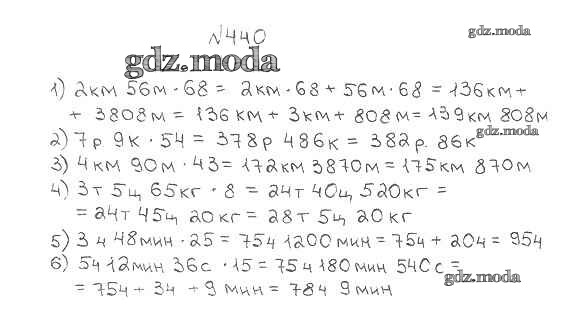 №440
gdz.moda
gdz.moda
1) 2км 56м · 68 = 2км · 68 + 56м · 68 = 136км +
+ 3808м = 136км + 3км + 808м = 139км 808м
2) 7р 9к · 54 = 378р 486к = 382р. 86к
gdz.moda
3) 4км 90м · 43 = 172км 3870м = 175км 870м
4) 3т 5ц 65кг · 8 = 24т 40ц 520кг =
= 24т 45ц 20кг = 28т 5ц 20кг
5) 3ч 48мин · 25 = 75ч 1200мин = 75ч + 20ч = 95ч
6) 5ч 12мин 36с · 15 = 75ч 180мин 540с =
gdz.moda
= 75ч + 3ч + 9мин = 78ч 9мин